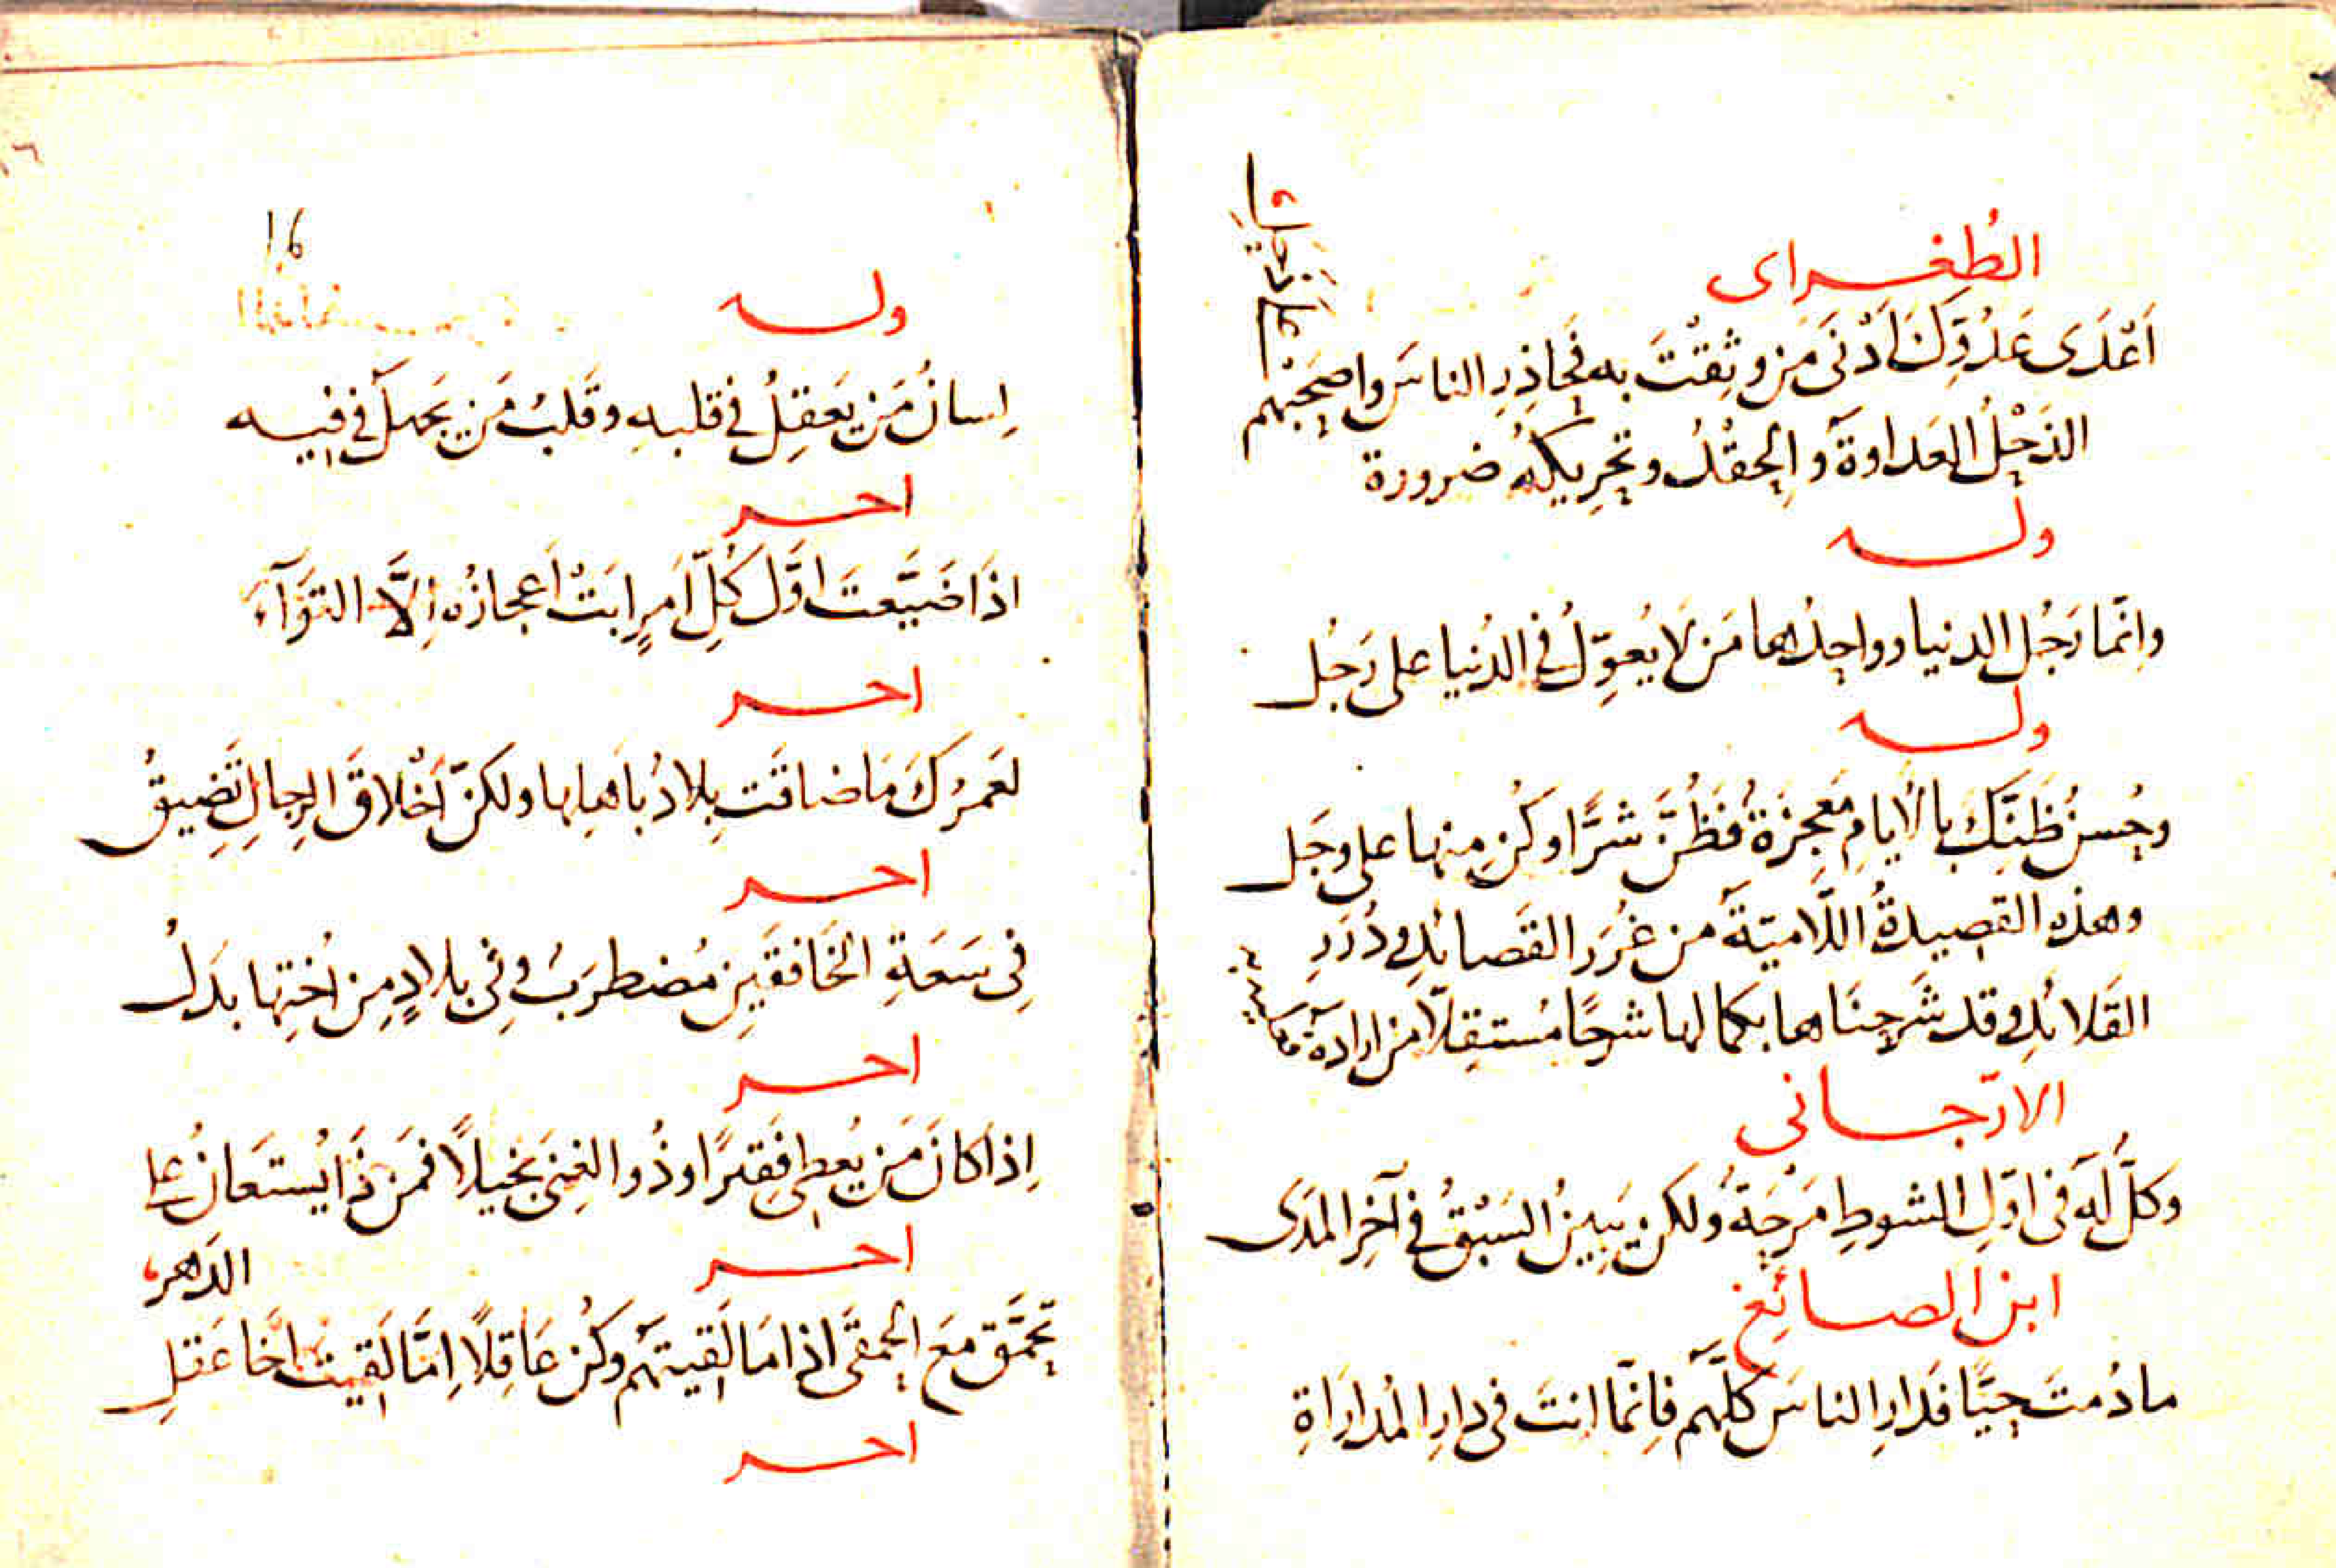 الطُغراى
اَعْدَى عَدُوِّكَ اَدْنَى مَن وثِقْتَ به فحَاذِرِ الناسَ واصحَبْهم
على دَخَلِ
الذَحْلُ العَداوةُ والحِقْدُ وتحرِيكهُ ضرورة
وله
وانّما رَجُل الدنيا وواحِدُها مَن لا يُعوِّلُ فى الدُنيا على رَجُل
وله
وحُسنُ ظَنِّكَ بالأيامِ مَعجِزَةٌ فَظُنَّ شرًّا وكُن مِنها على وجَل
وهذه القصيدةُ اللّاميّةَ من غُرَرِ القَصائدِ و دُرَرِ
القَلائدِ وقد شَرحنَاها بكمالها شرحًا مُستقِلّا من ارادهَ
الارّجانى
وكلٌّ لَه فى اوّلِ الشوطِ مَرْحَةٌ ولكن يَبِينُ السَبْقُ فى آخرِ المَدَى
ابن الصائغ
ما دُمتَ حيًّا فدَارِ الناسَ كلَّهم فاِنّما انتَ فى دارِ المُدارَاةِ
16
وله
لِسانُ مَن يَعقِلُ فى قلبهِ وقَلبُ مَن يَجهلُ فى فِيه
اخر
اذَا ضَيَّعتَ اوّل كُلِّ اَمرٍ ابَتْ اَعجازُه اِلَّا التوَآءَ
اخر
لعَمرُكَ مَا ضاقَت بِلادٌ باَهلِها ولكنّ اَخْلاقَ الرِجالِ تَضِيقُ
اخر
فِى سَعَةِ الخَافقَينِ مُضطرَبُ وفِى بلادٍ مِن اُختِها بدَلُ
اخر
اِذَا كانَ مَن يُعطِى فَقيرًا وذُو الغِنى بخيلًا فمَن ذَا يُستَعَانُ على
الدَهرِ
اخر
تحَمَّق مَع الحمقَى اذا مَا لَقِيتَهُم وكُن عَاقِلًا اِمَّا لَقِيتَ اخَا عَقلِ
اخر